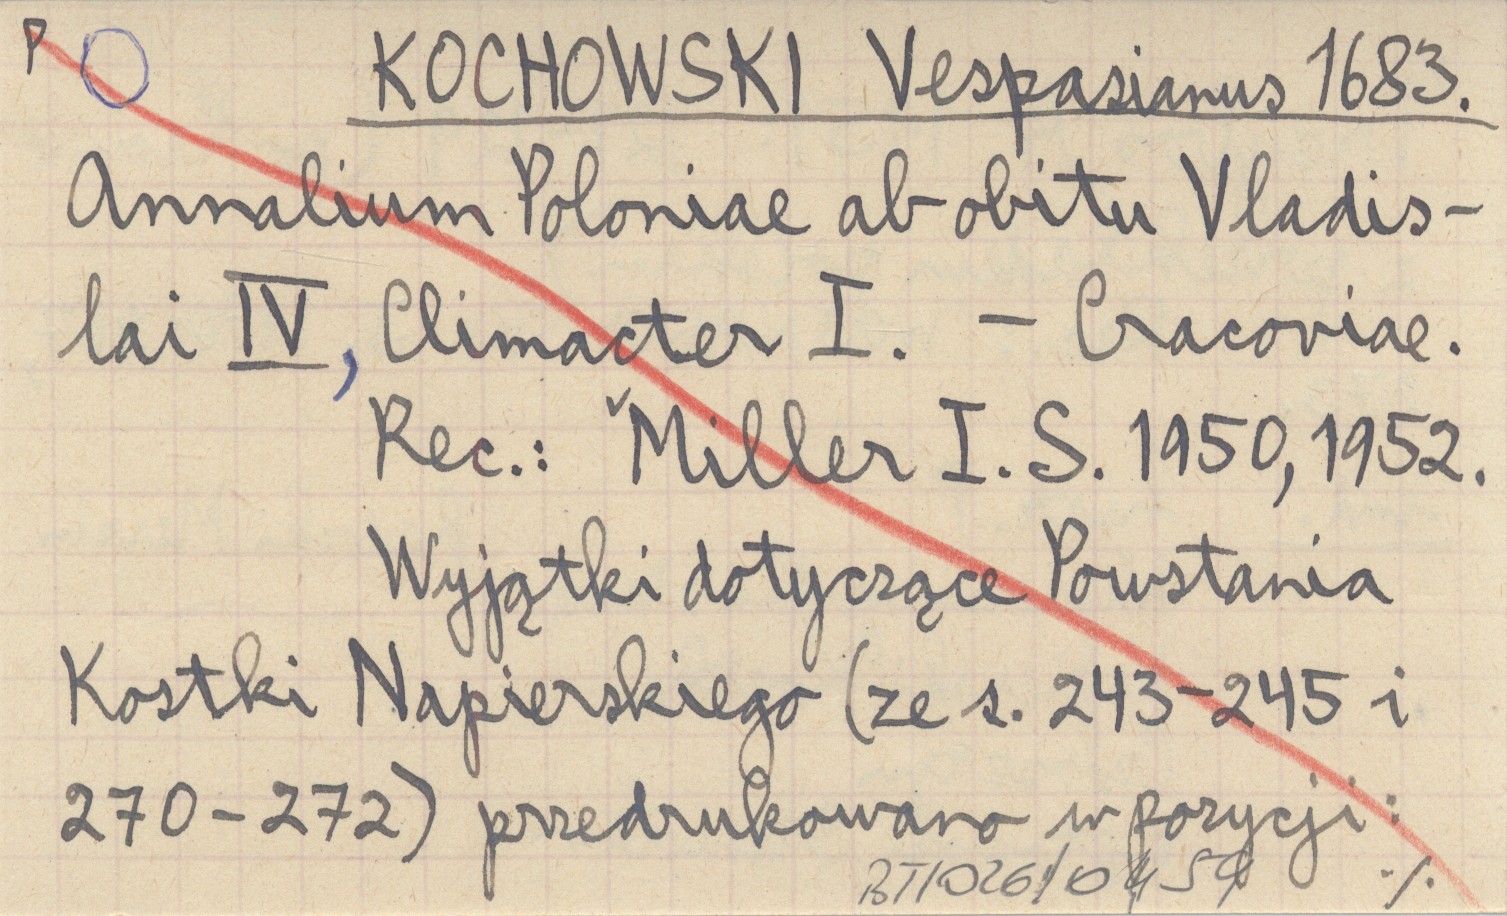 P KOCHOWSKI Vespasianus 1683.
Annalium Poloniae ab obitu Vladis-
lai IV, Climacter I. – Cracoviae.
Rec.: Miller I. S. 1950, 1952.
Wyjątki dotyczące Powstania
Kostki Napierskiego (ze s. 243-245 i
270-272) przedrukowano w pozycji:
./.